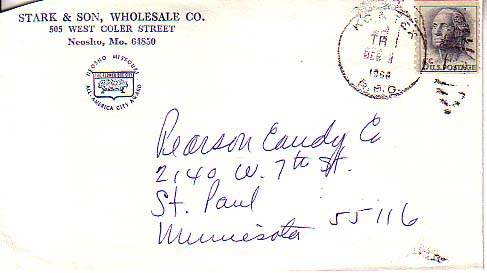 STARK & SON, WHOLESALE CO.
505 WEST COLER STREET
Neosho, Mo. 64850
NEOSHO MISSOURI
ALL-AMERICA CITY AWARD
TR
DEC
R.P.O.
U.S. POSTAGE
Pearson Candy Co
2140 W. 7th St.
St. Paul
Minnesota 55116